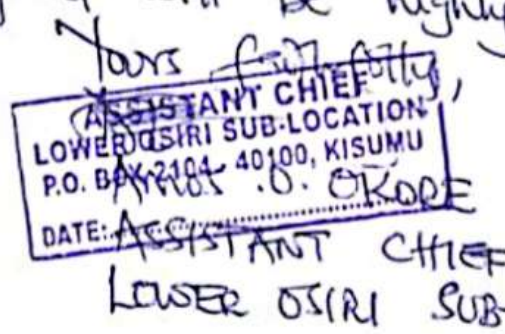 be highly
Yours faithfully,
ASSISTANT CHIEF
LOWER OSIRI SUB-LOCATION
P.O. BOX 2104 - 40100, KISUMU
AMOS .O. OKODE
DATE:
ASSISTANT CHIEF
LOWER OSIRI SUB-